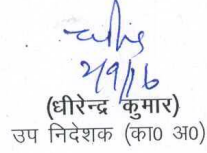 2/9/16
(धीरेन्द्र कुमार)
उप निदेशक (का0 अ0)